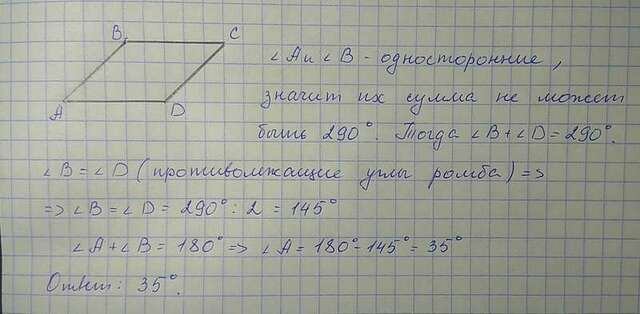 B C
A D
∠A и ∠B - односторонние,
значит их сумма не может
быть 290°. Тогда ∠B+∠D=290°.
∠B=∠D (противолжащие углы ромба) =>
=> ∠B=∠D=290°:2=145°
∠A+∠B=180° => ∠A=180°-145°=35°
Ответ: 35°.